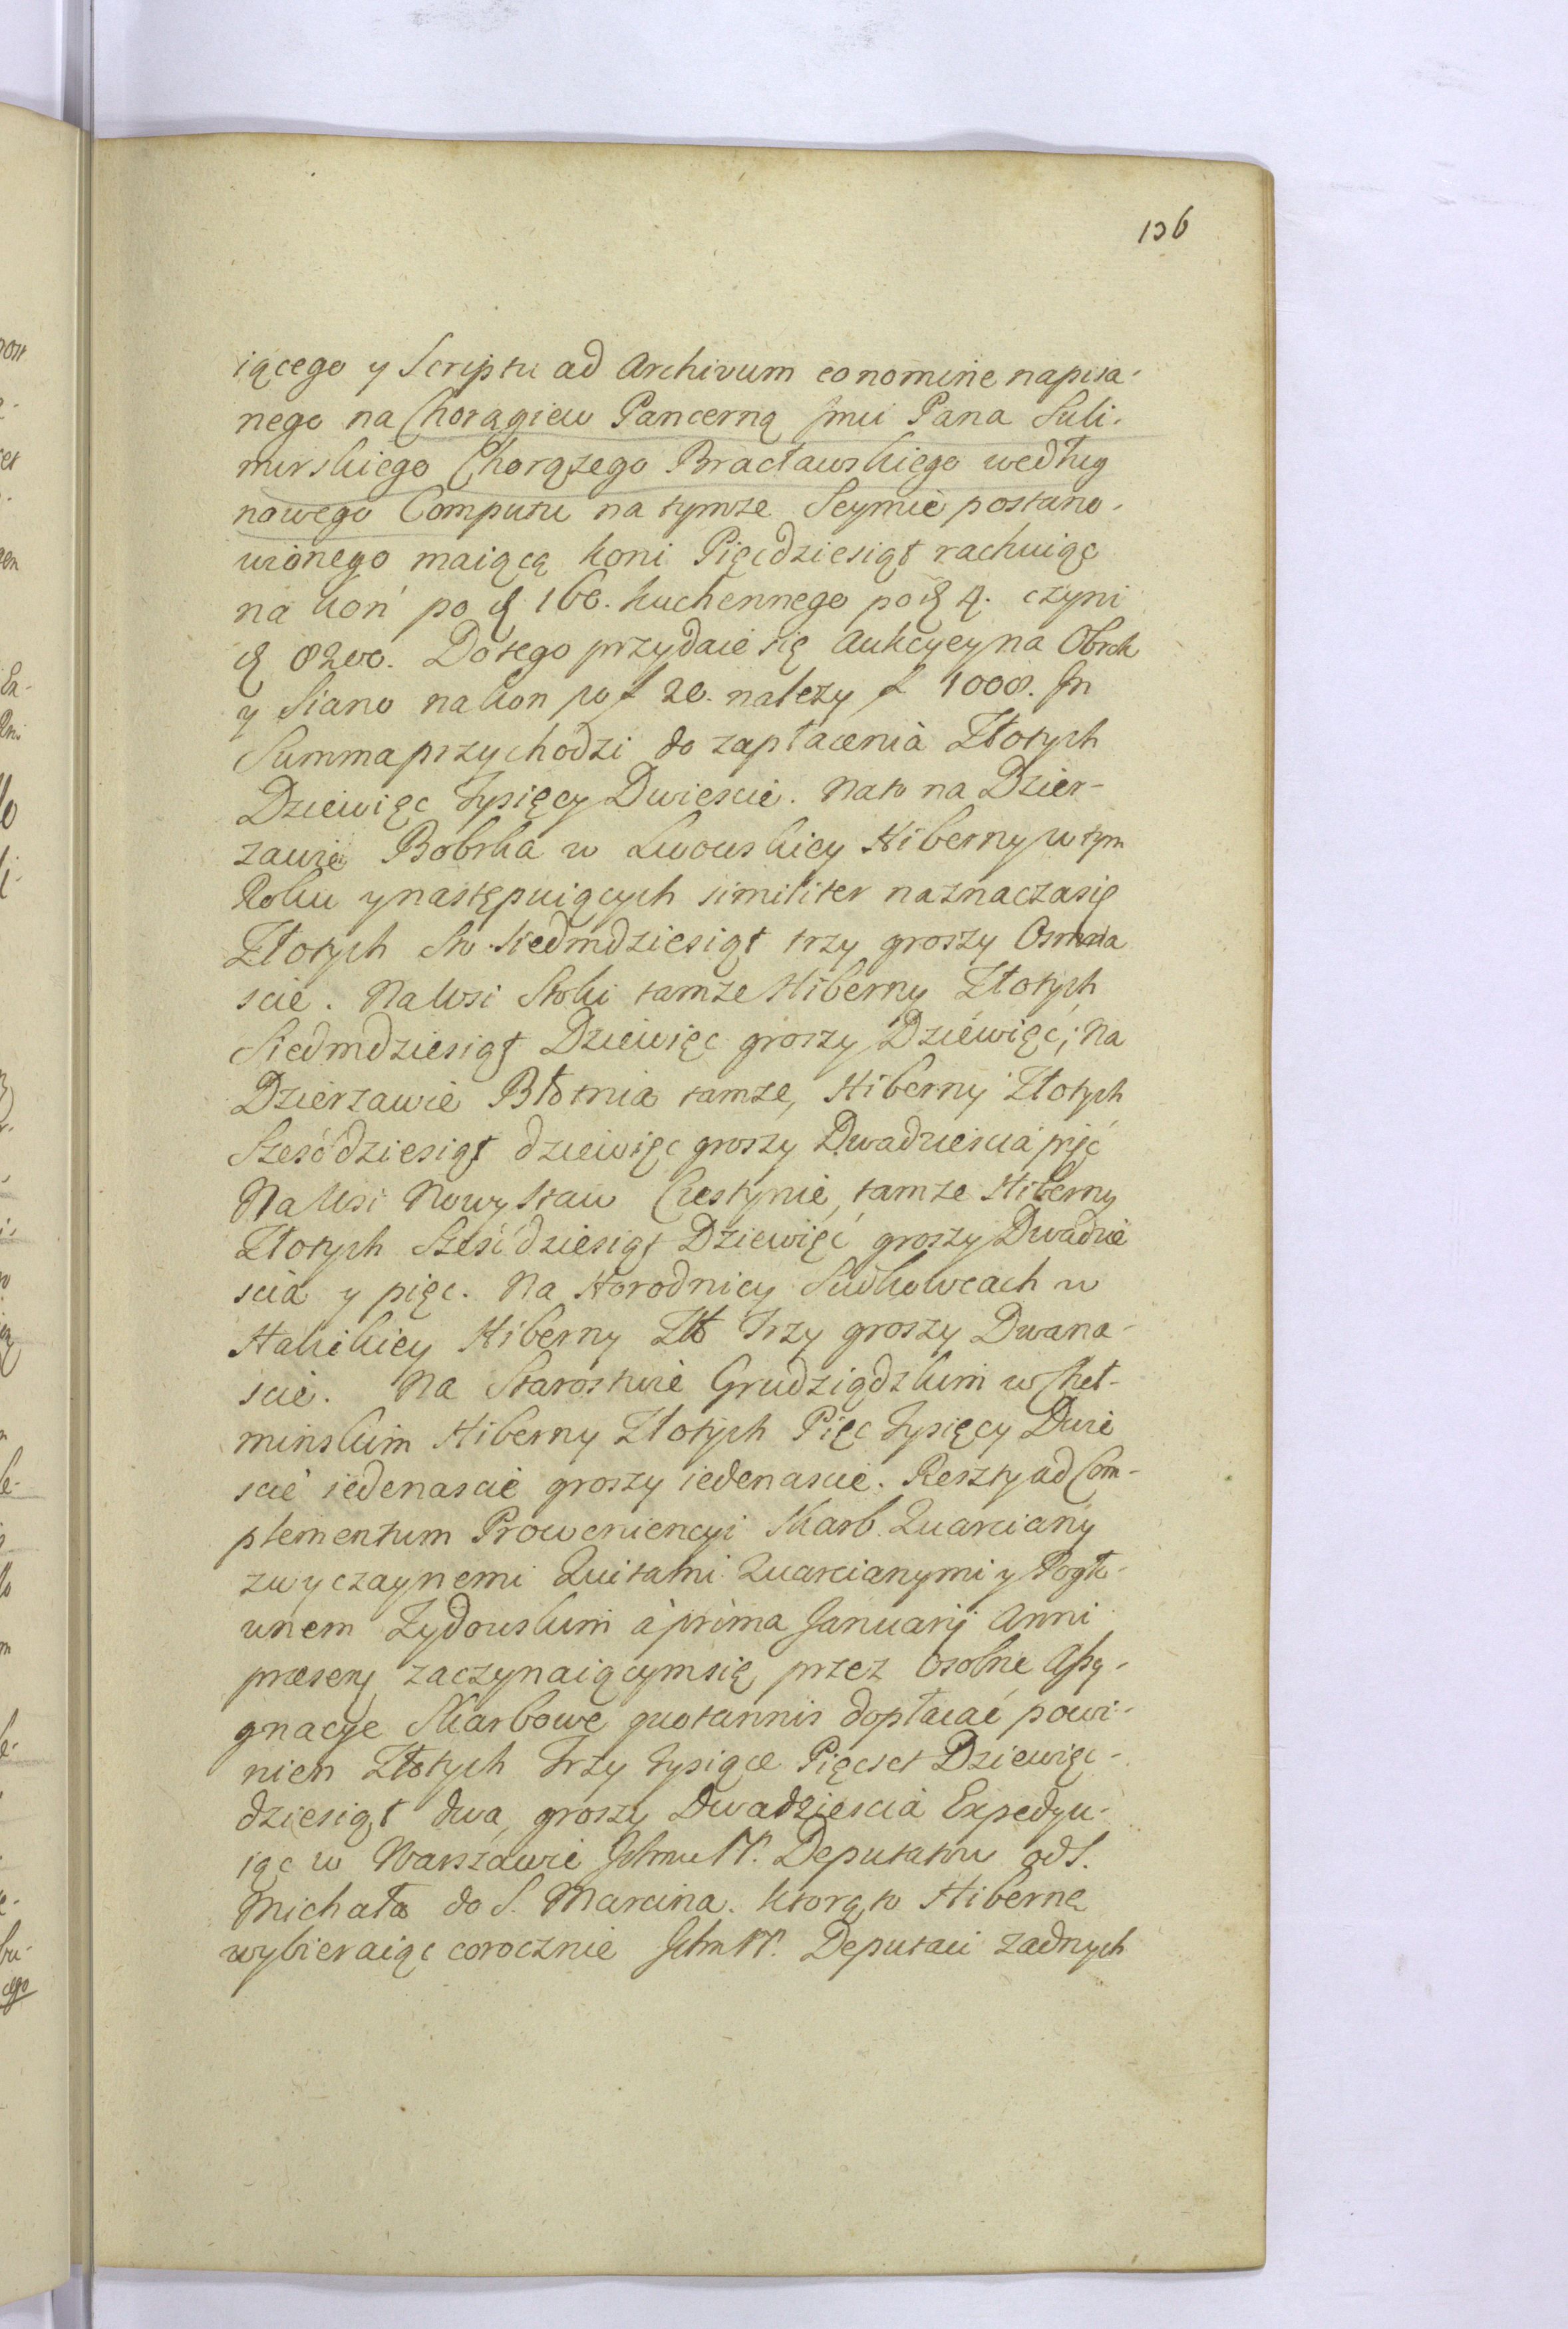 136
iącego y Scriptu ad Archivum eo nomine napisa-
nego na Chorągiew Pancerną Jmci Pana Suli-
mirskiego Chorążego Bracławskiego według
nowego Computu na tymże Seymie postano-
wionego maiącą koni Pięcdziesiąt rachuiąc
na koń po 160. kuchennego po 4. czyni
8200. Do tego przydaie się Aukcyey na Obrok
y Siano na kon po f 20. należy f 1000. In
Summa przychodzi do zapłacenia Złotych
Dziewięc Tysięcy Dwiescie. Na to na Dzier-
zawie Bobrka w Lwowskiey Hiberny w tym
Roku y następuiących similiter naznacza się
Złotych Sto Siedmdziesiąt trzy groszy Osmna
scie. Na Wsi Stoki tamże Hiberny Złotych
Siedmdziesiąt Dziewięc groszy Dziewięć; Na
Dzierzawie Błotnia tamże, Hiberny Złotych
Sześćdziesiąt dziewięc groszy Dwadziescia pięć
Na Wsi Nowy Staw Czestynie, tamże Hiberny
Złotych Sześćdziesiąt Dziewięć groszy Dwadzie
scia y pięc. Na Horodnicy Sudkowcach w
Halickiey Hiberny Zło Trzy groszy Dwana-
scie. Na Starostwie Grudziądzkim w Cheł-
minskim Hiberny Złotych Pięc Tysięcy Dwie
scie iedenascie groszy iedenascie. Reszty ad Com-
plementum Proweniencyi Skarb Quarciany
zwyczaynemi Quitami Quarcianymi y Pogło-
wnem Zydowskim à prima Januarij Anni
præsens zaczynaiącym się przez Osobne Assy-
gnacye Skarbowe quotannis dopłacać powi-
nien Złotych Trzy Tysiące Pięcset Dziewięc-
dziesiąt dwa, groszy Dwadziescia Expedyu-
iąc w Warszawie Deputatow od S.
Michała do S. Marcina. Ktorą to Hibernę
wybieraiąc corocznie Deputaci zadnych